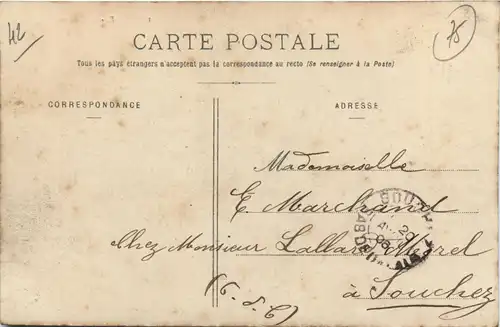 42
75
CARTE POSTALE
Tous les pays étrangers n'acceptent pas la correspondance au recto (Se renseigner à la Poste)
CORRESPONDANCE
ADRESSE
Mademoiselle
E. Marchand
Chez Monsieur Lallart Morel
à Souchez
(P. d. C)